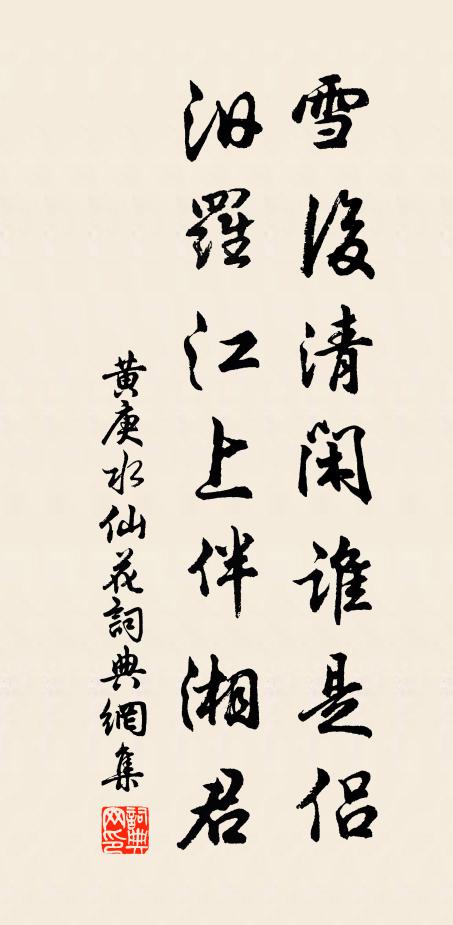 雪後清閑誰是侶
汨羅江上伴湘君
黄庚水仙花詞典網集
詞典網印